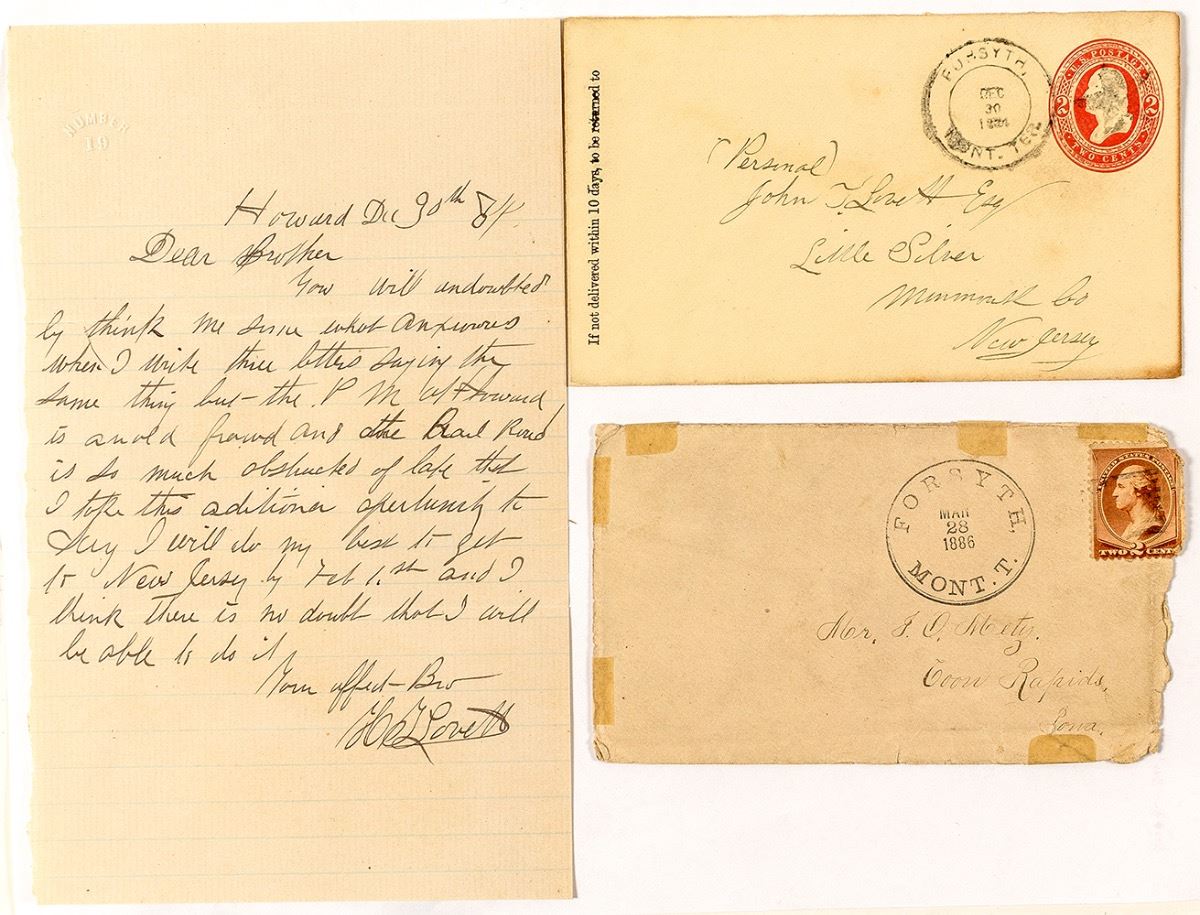 NUMBER
19
Howard Dec 30th 84.
Dear Brother
You will undoubted
by think me some what anxious
when I write three letters saying the
same thing but the P M at Howard
is an old fraud and the Rail Road
is so much obstructed of late that
I take this aditioner opertunity to
say I will do my best to get
to New Jersey by Feb 1st and I
think there is no doubt that I will
be able to do it
Your affect- Bro
H T Lovett
If not delivered within 10 days, to be returned to
FORSYTH,
DEC
30
1884
MONT. TER.
U.S. POSTAGE
2 2
TWO CENTS
(Personal)
John T. Lovett Esq
Little Silver
Monmouth Co
New Jersey
FORSYTH,
MAR
28
1886
MONT. T.
UNITED STATES POSTAGE
TWO 2 CENTS
Mr. F. O. Metz.
Coon Rapids,
Iowa.